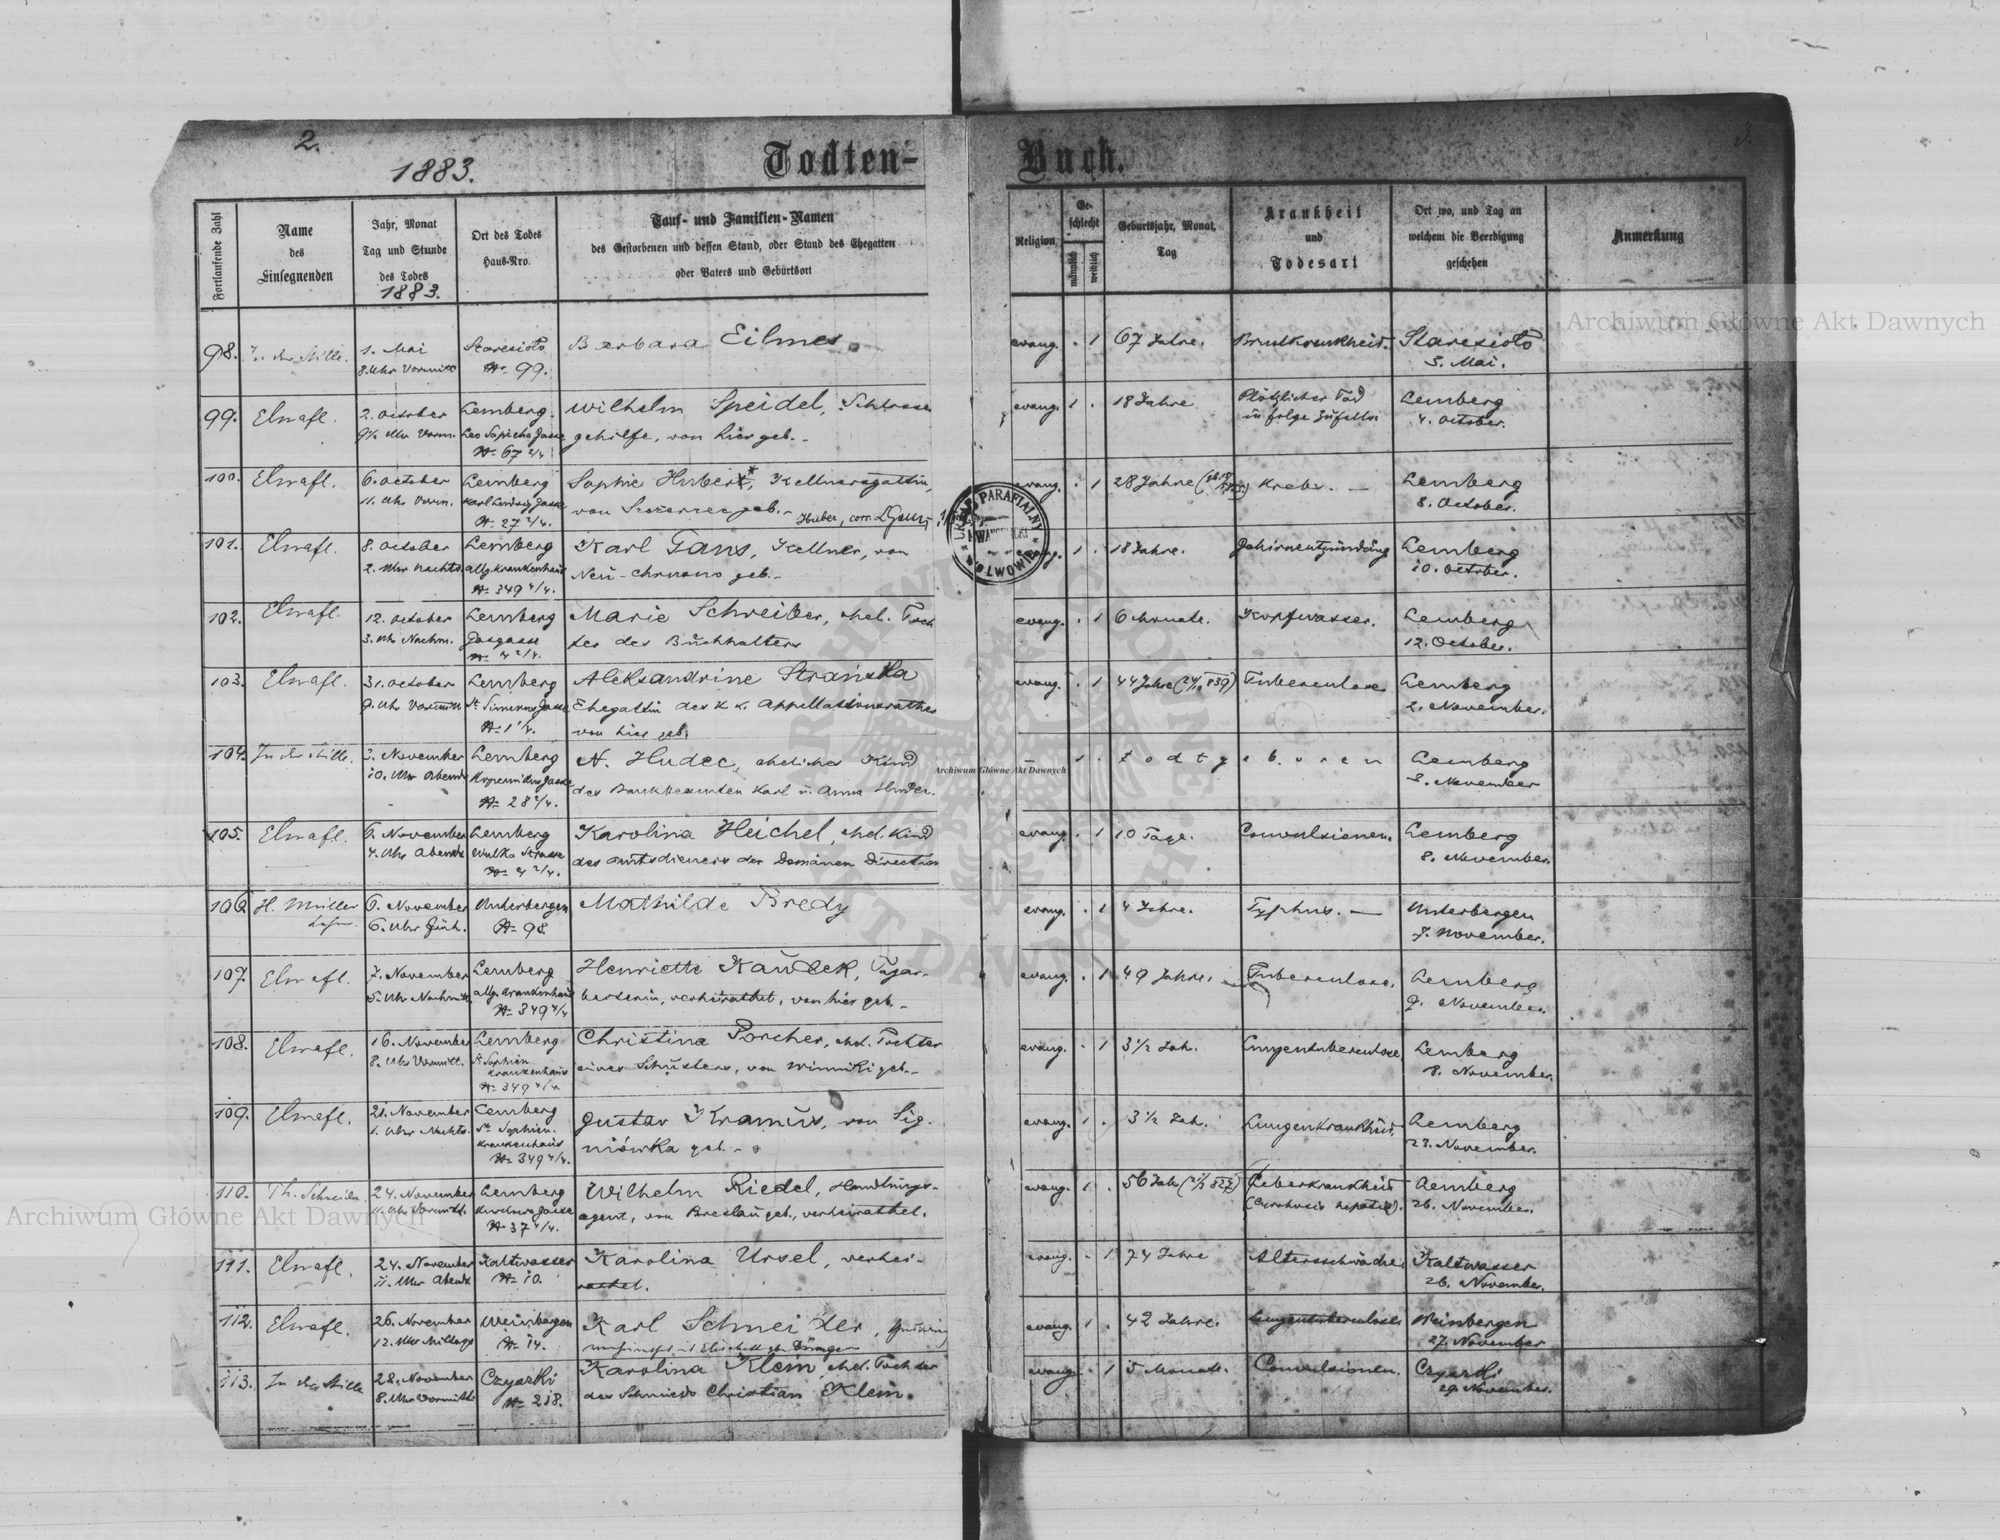 2.
1883.
Todten-
Buch.
3.
Fortlaufende Zahl
Name
des
Einsegnenden
Jahr, Monat
Tag und Stunde
des Todes
1883.
Ort des Todes
Haus-Nro.
Tauf- und Familien-Namen
des Gestorbenen und dessen Stand, oder Stand des Ehegatten
oder Vaters und Geburtsort
Religion
Ge-
schlecht
männlich
weiblich
Geburtsjahr, Monat,
Tag
Krankheit
und
Todesart
Ort wo, und Tag an
welchem die Beerdigung
geschehen
Anmerkung
98. In der Stille. 1. Mai Staresioło Barbara Eilmes evang. . 1 67 Jahre. Brustkrankheit. Staresioło
8. Uhr Vormitt № 99. 5. Mai.
99. 2. October Lemberg. Wilhelm Speidel, evang. 1 . 18 Jahre Plötzlicher Tod Lemberg
9½ Uhr Vorm. Leo Sapieha Gasse gehilfe, von hier geb. - in folge 4. October.
№ 67 2/4
100. 6. October Lemberg Sophie Hubert*, Kellnersgattin, evang. . 1 28 Jahre Krebs. — Lemberg
11. Uhr Vorm. Karl Ludwig Gasse von geb. - 8. October.
№ 27 2/4. Huber, corr.
101. 8. October Lemberg Karl Gans, Kellner, von evang. 1 . 18 Jahre. Gehirnentzündung Lemberg
2. Uhr Nachts. allg. Krankenhaus Neu- geb. - 10. October.
№ 349 4/4
102. 12. October Lemberg Marie Schreiber, ehel. Toch evang. . 1 6 Monate. Kopfwasser. Lemberg
3. Uhr Nachm. Gasgasse ter des Buchhalters 12. October.
№ 4 2/4.
103. 31. October Lemberg Aleksandrine Stranska evang. . 1 44 Jahre Tuberculose Lemberg
9. Uhr Vormitt Gasse Ehegattin des k. k. Appellationsrathes 2. November.
№ 1 1/4. von hier geb.
104. In d. Stille. 3. November Lemberg N. Hudec, eheliches Kind — 1 . todtgeboren Lemberg
10. Uhr Abends Kopernikus Gasse des Bankbeamten Karl u. Anna Hudec. 3. November
№ 28 2/4.
105. 6. November Lemberg Karolina Heichel, ehel. Kind evang. . 1 10 Tage. Convulsionen. Lemberg
4. Uhr Abends Wulka Strasse des Amtsdieners der Domänen Direction 8. November.
№ 4 2/4.
106 H. Müller 6. November Unterbergen Mathilde Bredy evang. . 1 4 Jahre. Typhus. — Unterbergen
6. Uhr Früh. № 98. 7. November.
107. 7. November Lemberg Henriette Kaudek, Tagar- evang. . 1 49 Jahre. Tuberculose. Lemberg
5. Uhr Nachmitt. allg. Krankenhaus beiterin, verheirathet, von hier geb. - 9. November.
№ 349 4/4
108. 16. November Lemberg Christina Porcher, ehel. Tochter evang. . 1 3½ Jah. Lungentuberculose Lemberg
8. Uhr Vormitt. St Sophien eines Schusters, von Winniki geb. - 8. November.
Krankenhaus
№ 349 4/4
109. 21. November Lemberg Gustav Kramus, von Sig- evang. 1 . 3½ Jah. Lungenkrankheit. Lemberg
1. Uhr Nachts. St Sophien. niówka geb. - 23. November.
Krankenhaus
№ 349 4/4.
110. Th. Schneider 24. November Lemberg Wilhelm Riedel, Handlungs- evang. 1 . 56 Jahr Leberkrankheit Lemberg
Gasse agent, von Breslau geb., verheirathet. (Cirrhosis hepatis). 26. November.
№ 37 4/4.
111. 24. November Kaltwasser Karolina Ursel, verhei- evang. . 1 74 Jahre Altersschwäche Kaltwasser
11. Uhr Abends № 10. rathet. 26. November.
112. 26. November Weinbergen Karl Schneider, evang. 1 . 42 Jahre. Lungentuberculose Weinbergen
12. Uhr Mittags № 14. 27. November
113. In der Stille 28. November Czyszki Karolina Klein, ehel. Tochter evang. . 1 5 Monate. Convulsionen. Czyszki
8. Uhr Vormitt № 218. des Schmieds Christian Klein. 29. November.
URZĄD PARAFIALNY
WE LWOWIE
Archiwum Główne Akt Dawnych
Archiwum Główne Akt Dawnych
Archiwum Główne Akt Dawnych
ARCHIWUM GŁÓWNE AKT DAWNYCH